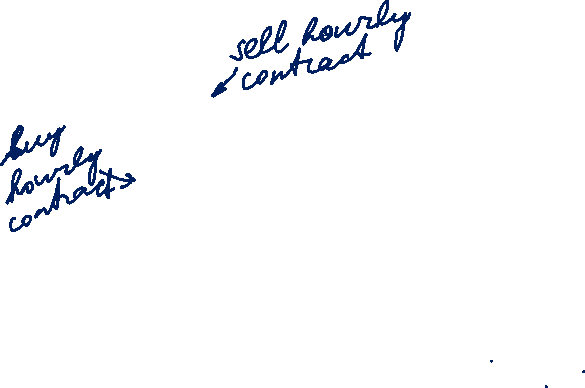 sell hourly
contract
buy
hourly
contract